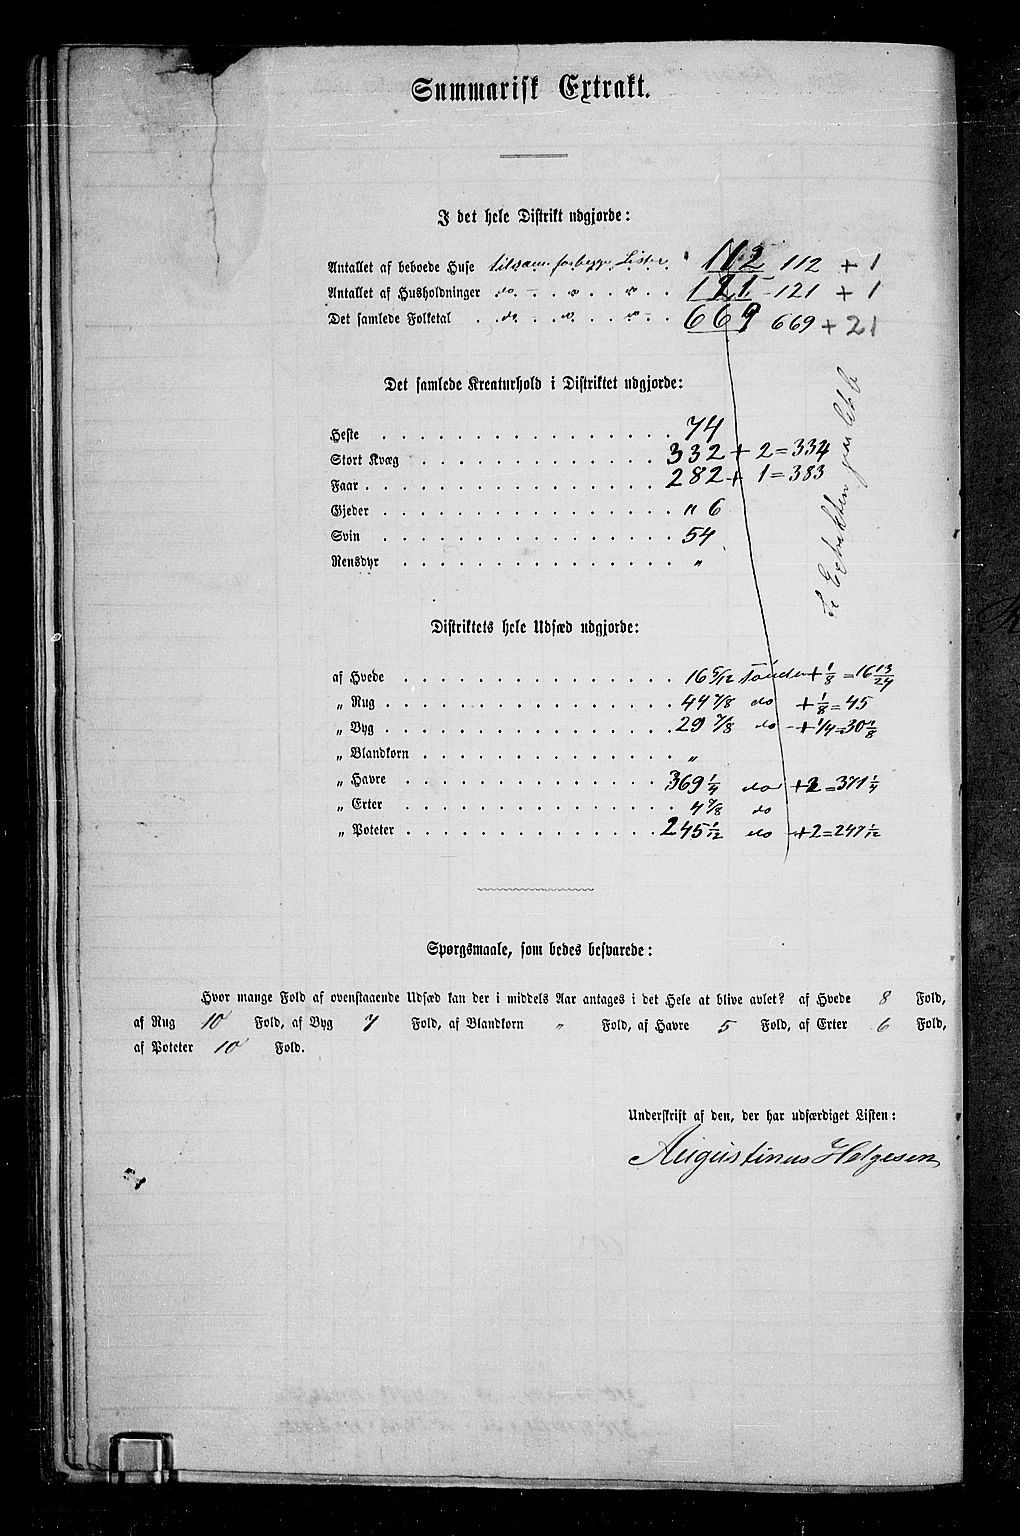 Summarisk Extrakt.
I det hele Distrikt udgjorde:
Antallet af beboede Huse tilsam. for begge Lister 112 112 + 1
Antallet af Husholdninger do — " " 121 - 121 + 1
Det samlede Folketal do " " 669 669 + 21
Det samlede Kreaturhold i Distriktet udgjorde:
Heste 74
Stort Kvæg 332 + 2 = 334
Faar 282 + 1 = 383
Gjeder " 6
Svin 54
Rensdyr "
Se Extrakten paa
Distriktets hele Udsæd udgjorde:
af Hvede 16 5/12 Tönder + 1/8 = 16 13/24
„ Rug 44 7/8 do + 1/8 = 45
„ Byg 29 7/8 do + 1/4 = 30 1/8
„ Blandkorn "
„ Havre 369 1/4 do + 2 = 371 1/4
„ Erter 4 7/8 do
„ Poteter 245 1/12 do + 2 = 247 1/12
Spørgsmaale, som bedes besvarede:
Hvor mange Fold af ovenstaaende Udsæd kan der i middels Aar antages i det Hele at blive avlet? af Hvede 8 Fold,
af Rug 10 Fold, af Byg 7 Fold, af Blandkorn " Fold, af Havre 5 Fold, af Erter 6 Fold,
af Poteter 10 Fold.
Underskrift af den, der har udfærdiget Listen:
Augustinus Helgesen